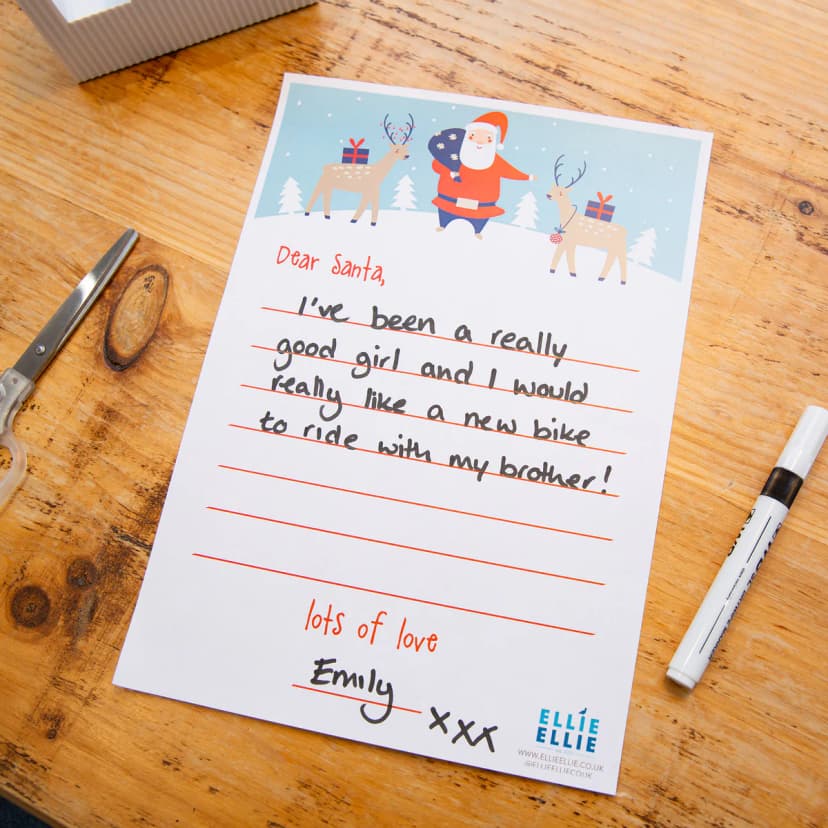 Dear Santa,
I've been a really
good girl and I would
really like a new bike
to ride with my brother!
lots of love
Emily xxx
ELLIE
ELLIE
WWW.ELLIEELLIE.CO.UK
@ELLIEELLIECOUK